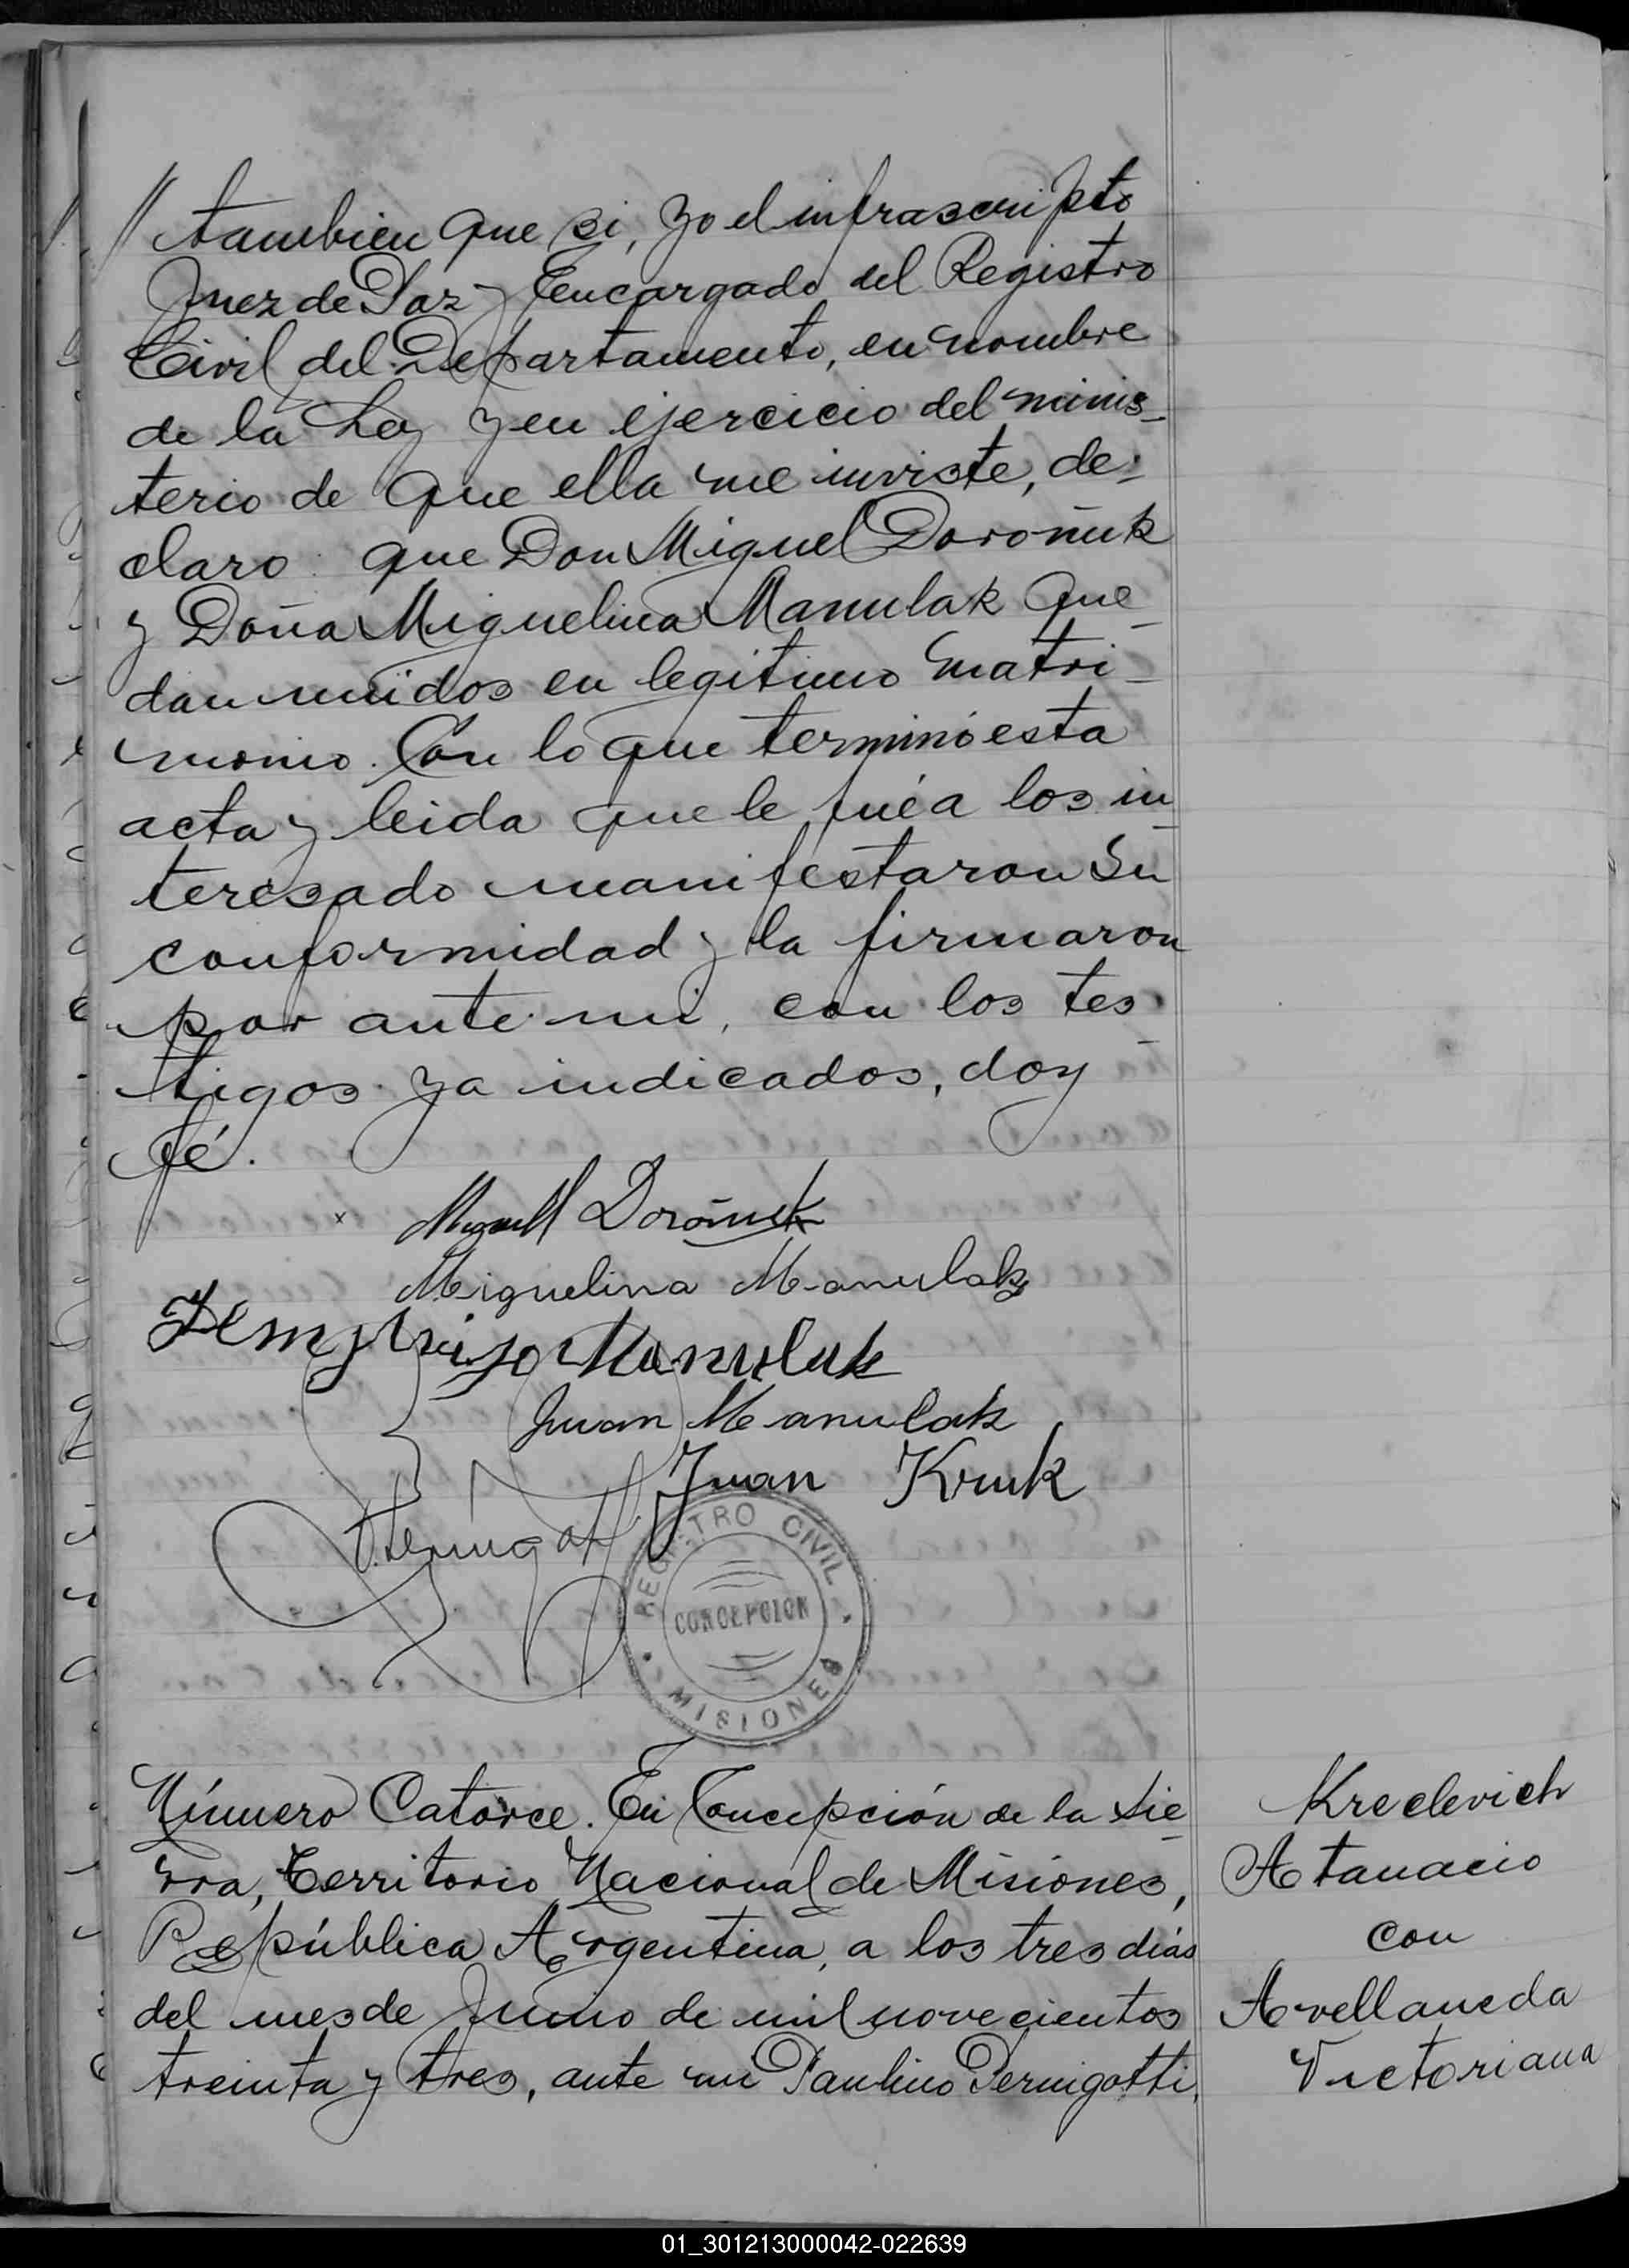 // tambien que si, yo el infrascripto
Juez de Paz y Encargado del Registro
Civil del Departamento, en nombre
de la Ley y en ejercicio del minis-
terio de que ella me inviste, de-
claro: que Don Miguel Doroñuk
y Doña Miguelina Manulak que-
dan unidos en legitimo matri-
monio. Con lo que terminó esta
acta y leida que le fué a los in-
teresado manifestaron su
conformidad y la firmaron
por ante mi, con los tes-
tigos ya indicados, doy
fé.
x Miguel Doroñuk
Miguelina Manulak
Manulak
Juan Manulak
Juan Kruk
REGISTRO CIVIL
CONCEPCION
MISIONES
Número Catorce. En Concepción de la Sie-
rra, Territorio Nacional de Misiones,
República Argentina, a los tres dias
del mes de Junio de mil novecientos
treinta y tres, ante mi Paulino Pernigotti,
Kreclevich
Atanacio
con
Avellaneda
Victoriana
01_301213000042-022639